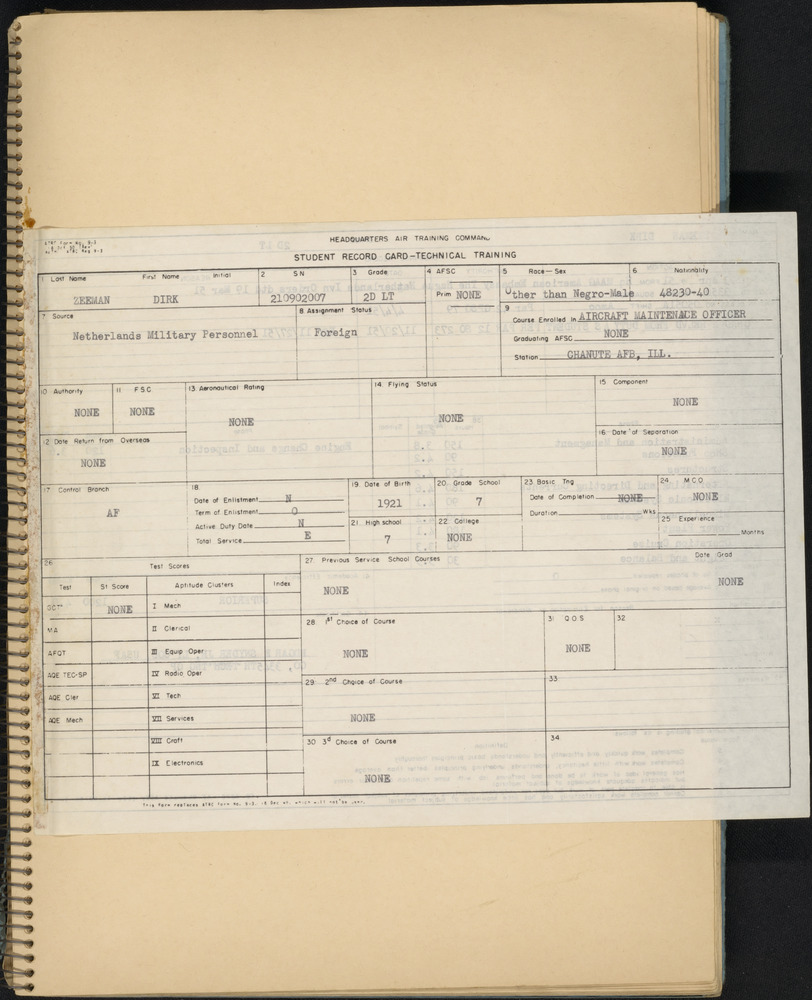 HEADQUARTERS AIR TRAINING COMMAND
STUDENT RECORD CARD-TECHNICAL TRAINING
1 Last Name First Name Initial
ZEEMAN DIRK
2 S N
210902007
3 Grade
2D LT
4 AFSC
Prim NONE
5 Race-Sex
Other than Negro-Male
6 Nationality
48230-40
7 Source
Netherlands Military Personnel
8 Assignment Status
Foreign
9
Course Enrolled In AIRCRAFT MAINTENACE OFFICER
Graduating AFSC NONE
Station CHANUTE AFB, ILL.
10 Authority
NONE
11 FSC
NONE
13 Aeronautical Rating
NONE
14 Flying Status
NONE
15 Component
NONE
12 Date Return from Overseas
NONE
16 Date of Separation
NONE
17 Control Branch
AF
18
Date of Enlistment N
Term of Enlistment O
Active Duty Date N
Total Service E
19 Date of Birth
1921
20 Grade School
7
21 High school
7
22 College
NONE
23 Basic Tng
Date of Completion NONE
Duration Wks
24 MCO
NONE
25 Experience
Months
26 Test Scores
Test St Score Aptitude Clusters Index
NONE I Mech
MA II Clerical
AFQT III Equip Oper
AQE TEC-SP IV Radio Oper
AQE Cler VI Tech
AQE Mech VII Services
VIII Craft
IX Electronics
27 Previous Service School Courses Date Grad
NONE NONE
28 1st Choice of Course
NONE
31 QOS
NONE
32
29 2nd Choice of Course
NONE
33
30 3d Choice of Course
NONE
34